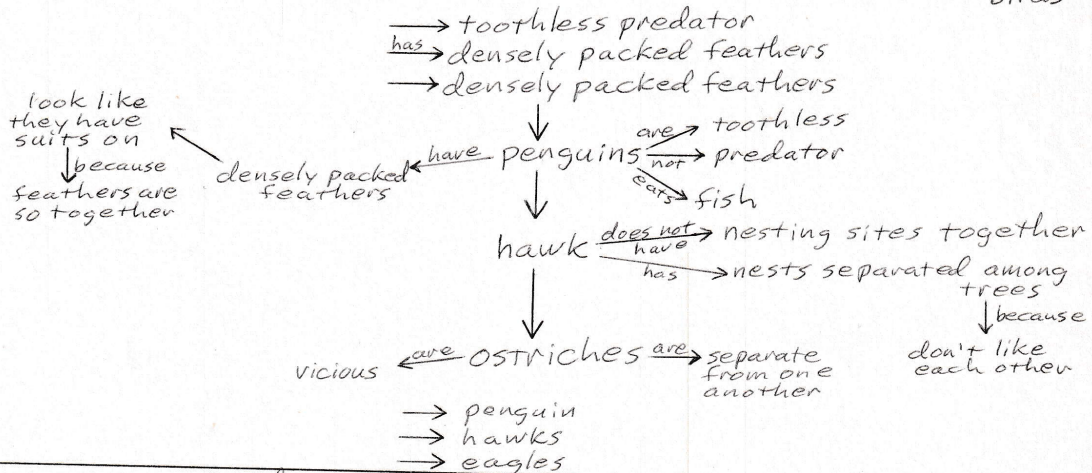 toothless predator
has densely packed feathers
densely packed feathers
look like
they have
suits on
because
feathers are
so together
densely packed
feathers
have
penguins
are toothless
not predator
eats fish
hawk
does not
have
nesting sites together
has
nests separated among
trees
because
don't like
each other
vicious
are
ostriches
are
separate
from one
another
penguin
hawks
eagles